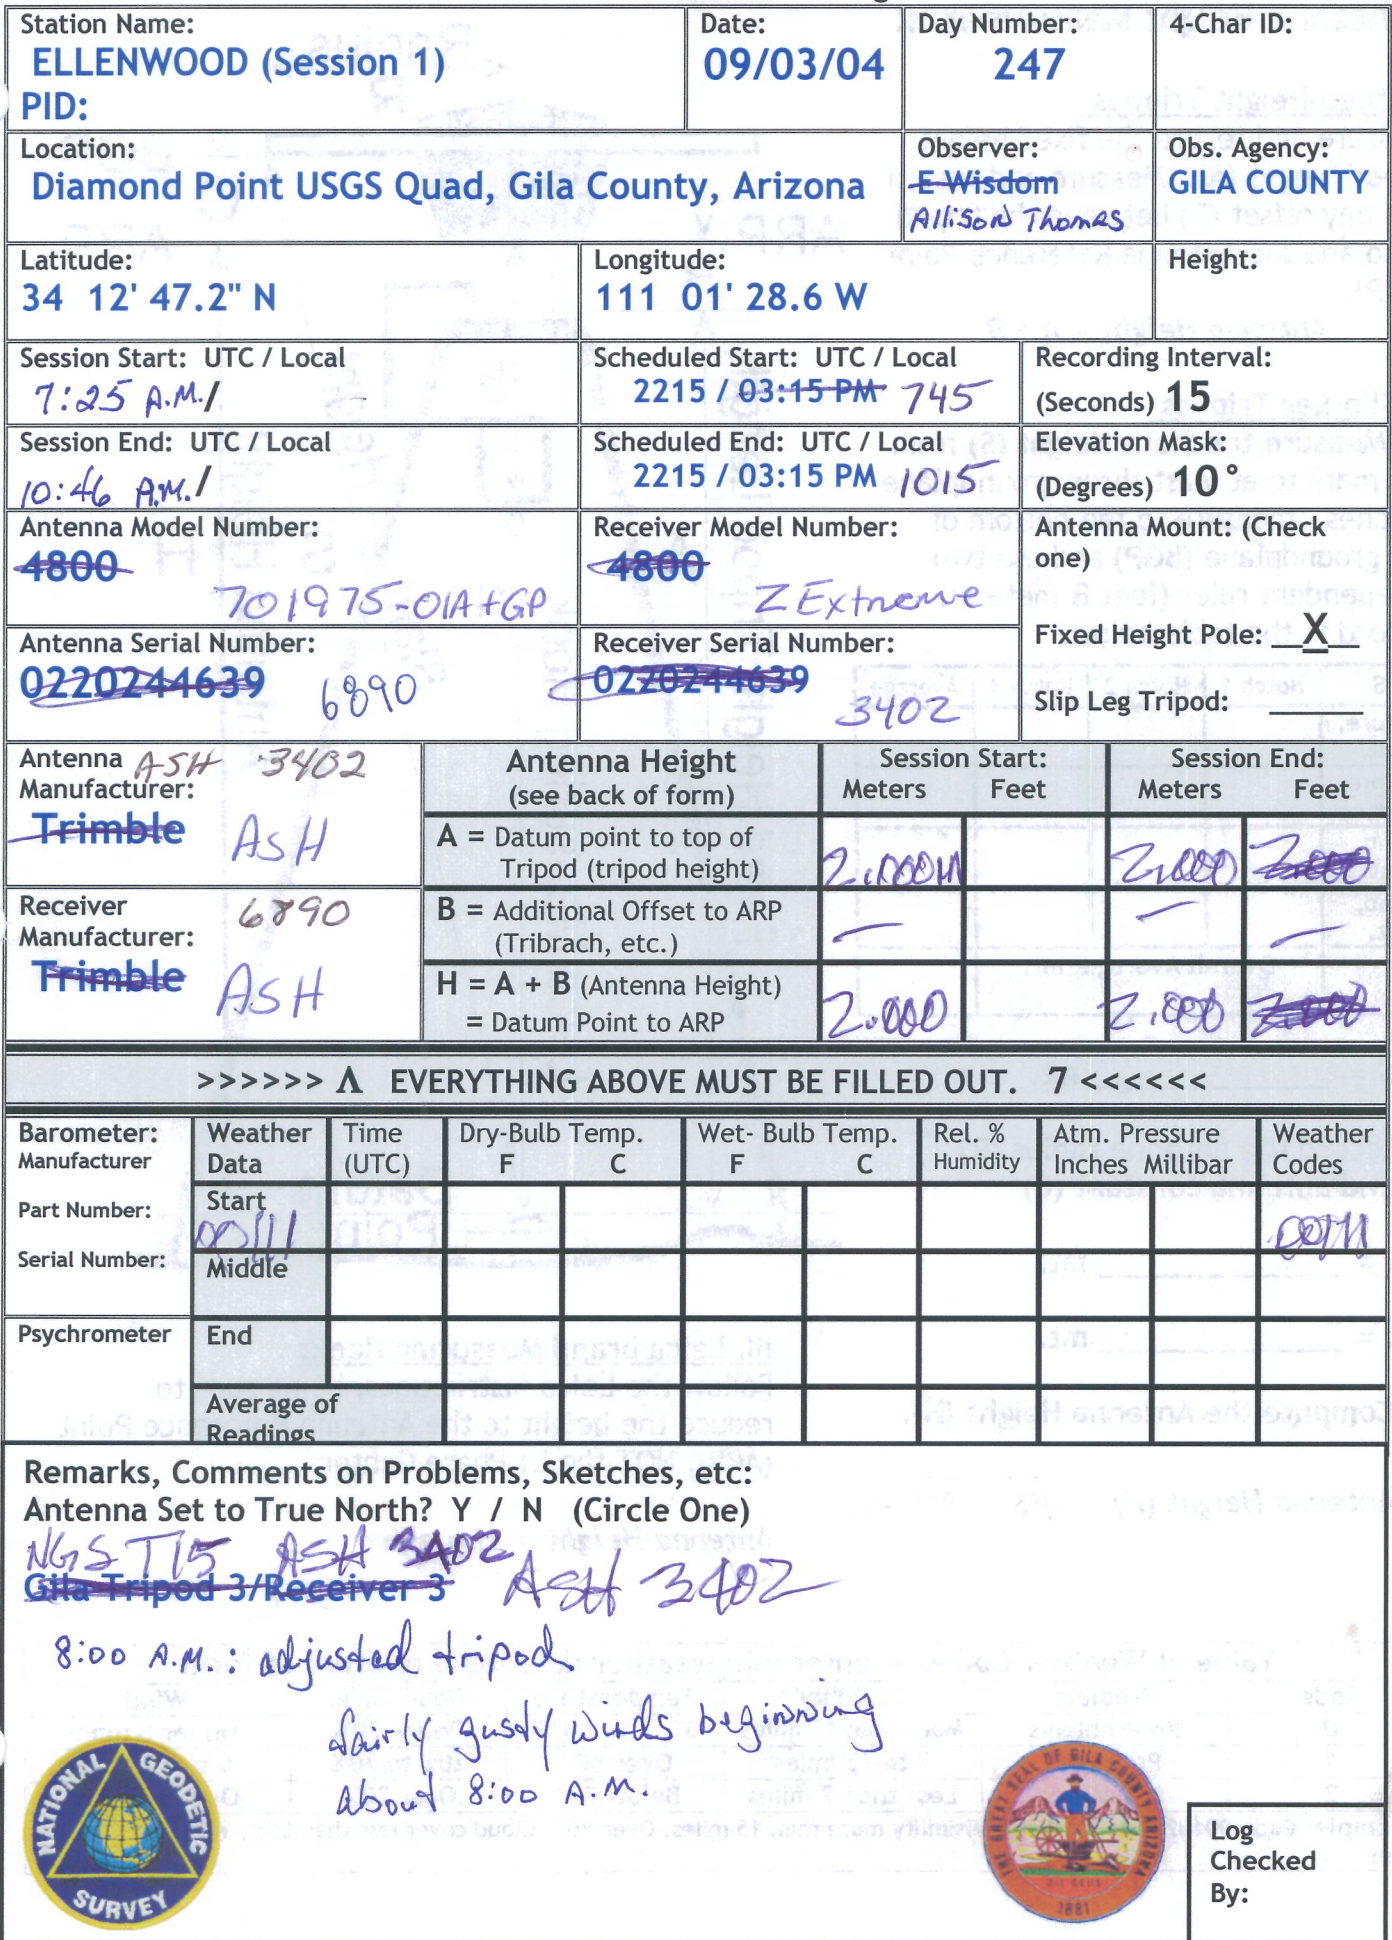 Station Name:
ELLENWOOD (Session 1)
PID:
Date:
09/03/04
Day Number:
247
4-Char ID:
Location:
Diamond Point USGS Quad, Gila County, Arizona
Observer:
E Wisdom
Allison Thomas
Obs. Agency:
GILA COUNTY
Latitude:
34 12' 47.2" N
Longitude:
111 01' 28.6 W
Height:
Session Start: UTC / Local
7:25 A.M. /
Scheduled Start: UTC / Local
2215 / 03:15 PM 745
Recording Interval:
(Seconds) 15
Session End: UTC / Local
10:46 A.M. /
Scheduled End: UTC / Local
2215 / 03:15 PM 1015
Elevation Mask:
(Degrees) 10°
Antenna Model Number:
4800
701975-01A+GP
Receiver Model Number:
4800
Z Extreme
Antenna Mount: (Check
one)
Fixed Height Pole: __X__
Slip Leg Tripod: ______
Antenna Serial Number:
0220244639
6890
Receiver Serial Number:
0220244639
3402
Antenna ASH 3402
Manufacturer:
Trimble ASH
Receiver 6890
Manufacturer:
Trimble ASH
Antenna Height
(see back of form)
Session Start:
Meters Feet
Session End:
Meters Feet
A = Datum point to top of
Tripod (tripod height)
2.000M 2.000 2.000
B = Additional Offset to ARP
(Tribrach, etc.)
— — —
H = A + B (Antenna Height)
= Datum Point to ARP
2.000 2.000 2.000
>>>>>> Λ EVERYTHING ABOVE MUST BE FILLED OUT. 7 <<<<<<
Barometer:
Manufacturer
Part Number:
Serial Number:
Psychrometer
Weather
Data
Time
(UTC)
Dry-Bulb Temp.
F C
Wet- Bulb Temp.
F C
Rel. %
Humidity
Atm. Pressure
Inches Millibar
Weather
Codes
Start
00111
Middle
End
Average of
Readings
Remarks, Comments on Problems, Sketches, etc:
Antenna Set to True North? Y / N (Circle One)
NGS T15 ASH 3402
Gila Tripod 3/Receiver 3 ASH 3402
8:00 A.M.: adjusted tripod
fairly gusty winds beginning
about 8:00 A.M.
NATIONAL GEODETIC SURVEY
THE GREAT SEAL OF GILA COUNTY ARIZONA
1881
Log
Checked
By: